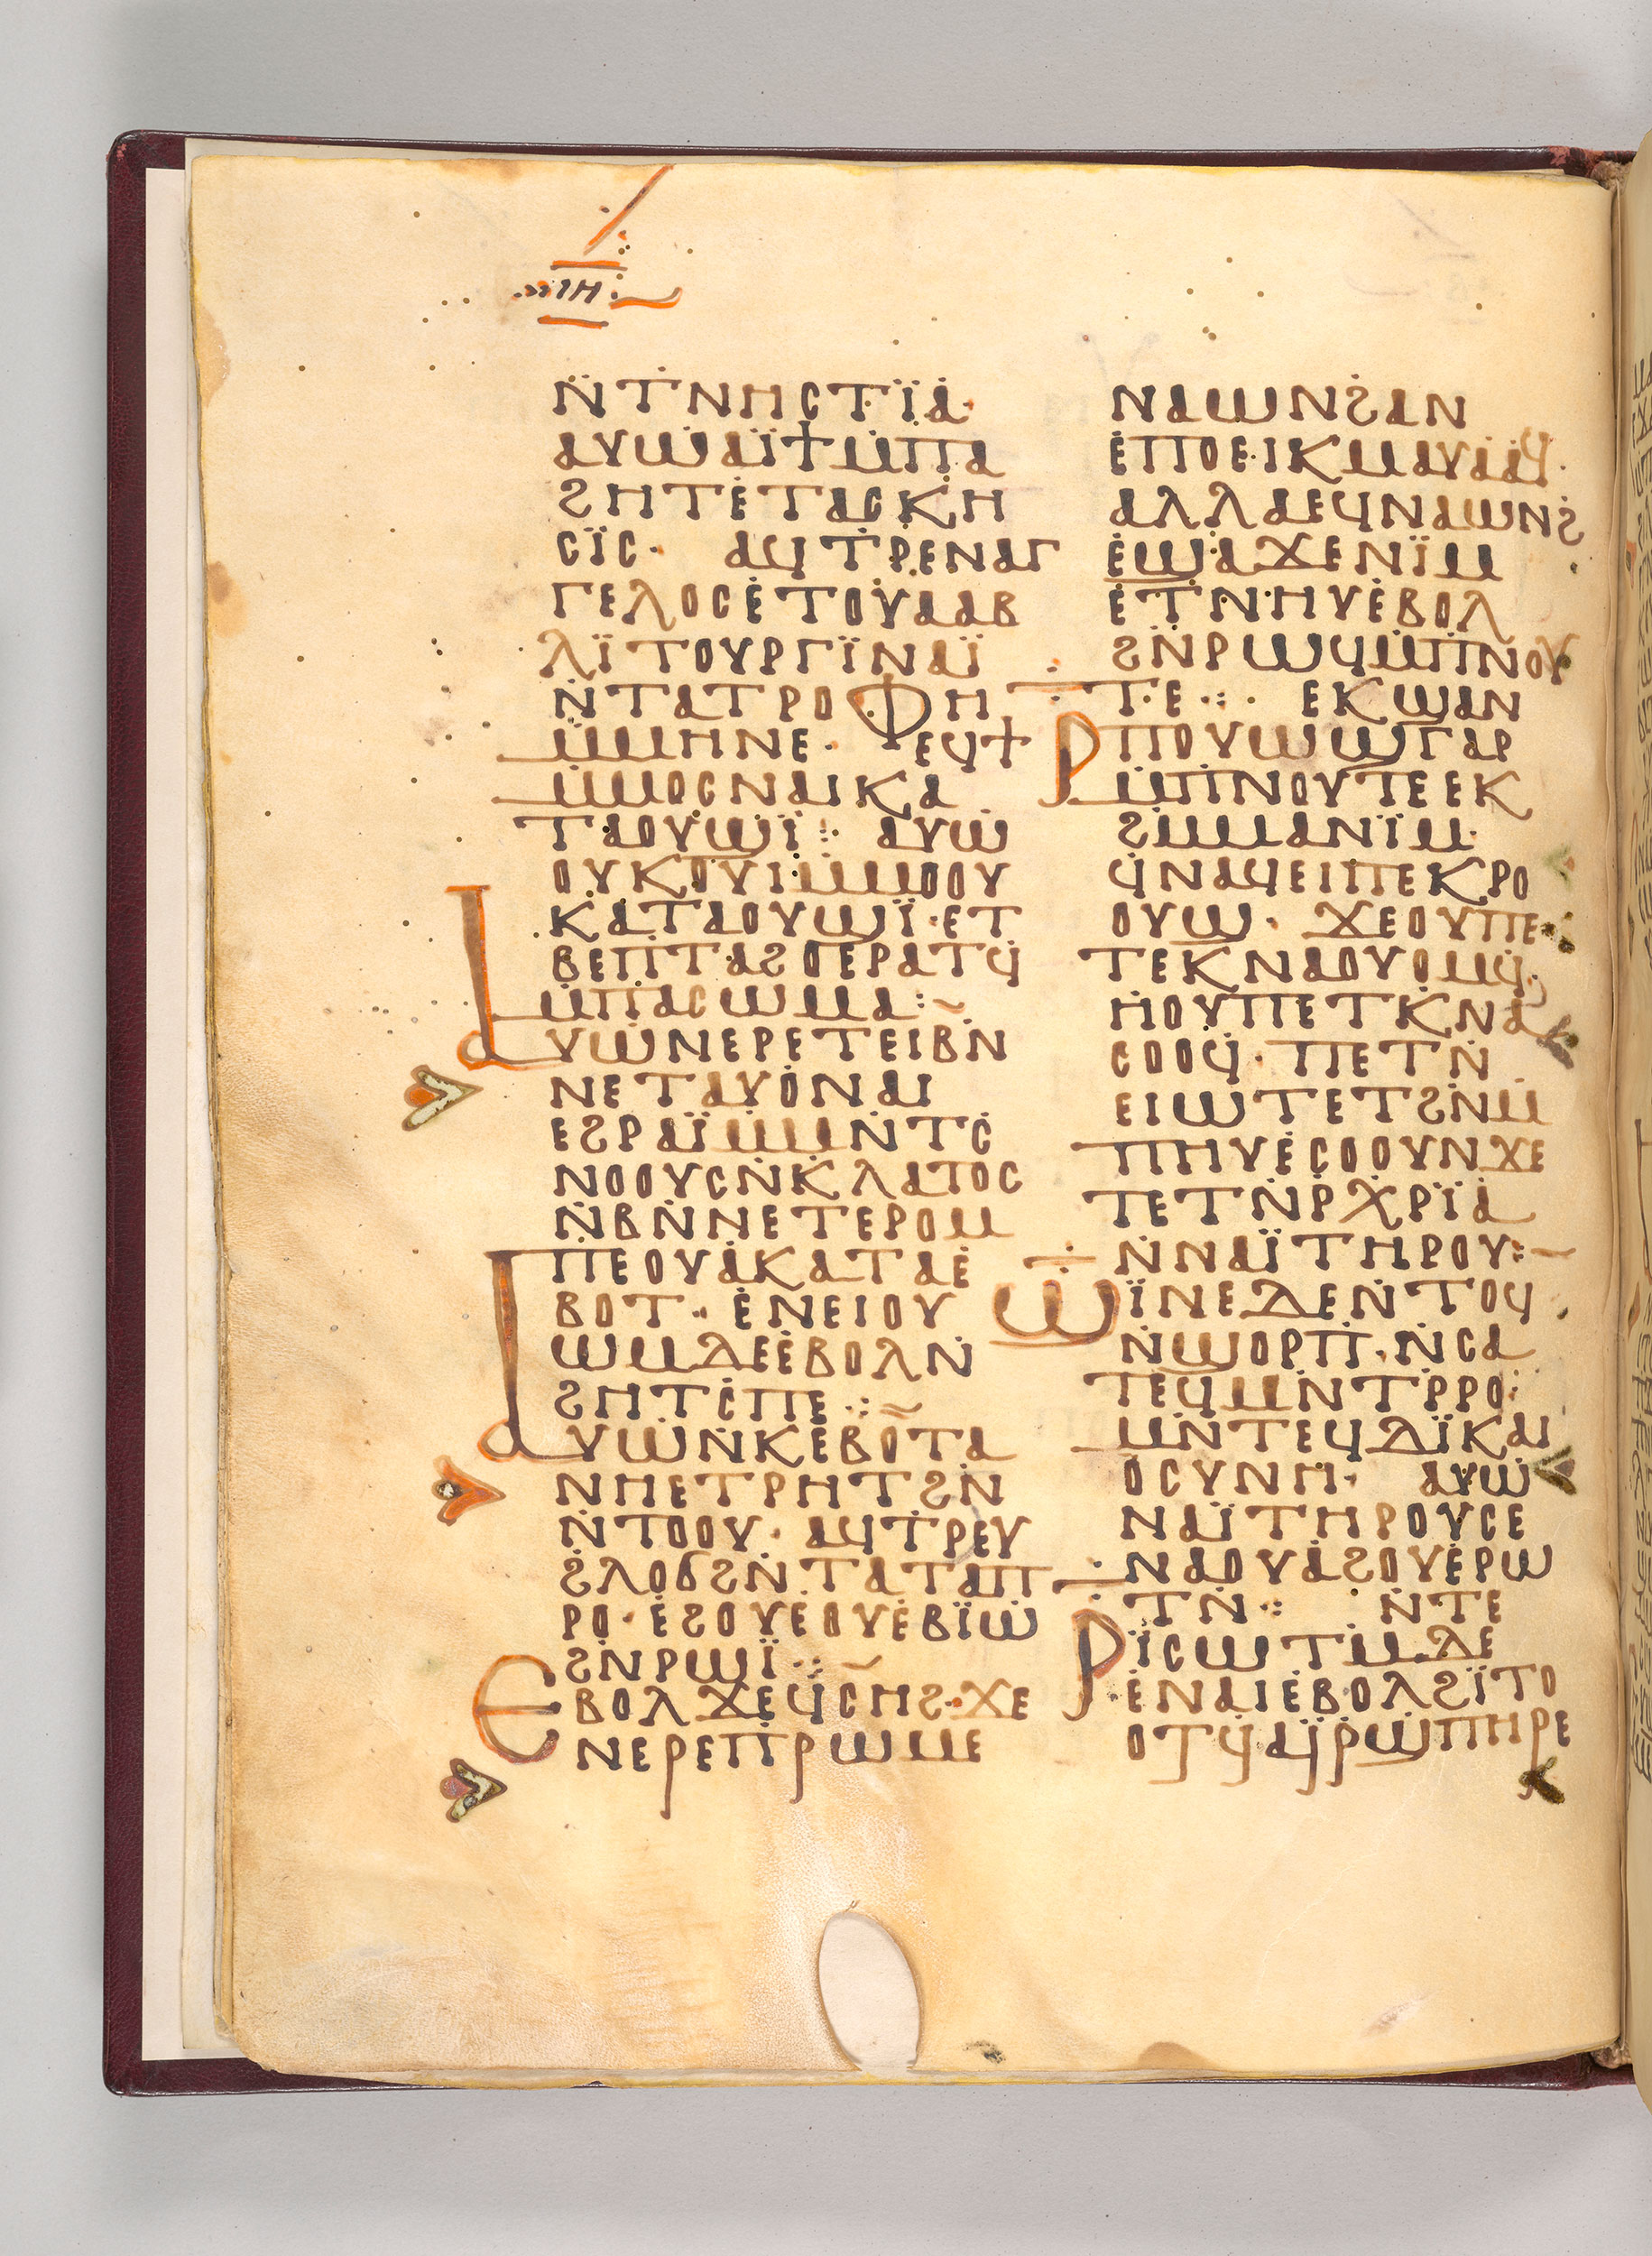 ⲓⲏ
ⲛ̈ⲧⲛⲏⲥⲧⲓ̈ⲁ·
ⲁⲩⲱⲁⲓ̈ϯⲙ̄ⲡⲁ
ϩⲏⲧⲉ̇ⲧⲁⲥⲕⲏ
ⲥⲓ̈ⲥ· ⲁϥⲧⲣⲉⲛⲁⲅ
ⲅⲉⲗⲟⲥⲉ̇ⲧⲟⲩⲁⲁⲃ
ⲗⲓ̈ⲧⲟⲩⲣⲅⲓ̈ⲛⲁⲓ̈
ⲛ̇ⲧⲁⲧⲣⲟⲫⲏ
ⲙ̇ⲙⲏⲛⲉ· ⲉϥϯ
ⲙ̇ⲙⲟⲥⲛⲁⲓⲕⲁ
ⲧⲁⲟⲩϣⲓ̈⁘ ⲁⲩⲱ
ⲟⲩⲕⲟⲩⲓⲙ̇ⲙⲟⲟⲩ
ⲕⲁⲧⲁⲟⲩϣⲓ̈·ⲉⲧ
ⲃⲉⲡⲧⲁϩⲟⲉⲣⲁⲧϥ
ⲙ̇ⲡⲁⲥⲱⲙⲁ:~
ⲁⲩⲱⲛⲉⲣⲉⲧⲉⲓⲃⲛ̇
ⲛⲉⲧⲁⲩⲟ̇ⲛⲁⲓ
ⲉϩⲣⲁⲓ̈ⲙ̇ⲙⲛ̇ⲧⲥ̇
ⲛⲟⲟⲩⲥⲛ̇ⲕⲗⲁⲧⲟⲥ
ⲛ̇ⲃⲛ̇ⲛⲉⲧⲉⲣⲟⲙ
ⲡⲉⲟⲩⲁ̇ⲕⲁⲧⲁⲉ̇
ⲃⲟⲧ·· ⲉ̇ⲛⲉⲓⲟⲩ
ⲱⲙⲇⲉⲉ̇ⲃⲟⲗⲛ̇
ϩⲏⲧⲥ̇ⲡⲉ⁘~
ⲁⲩⲱⲛ̇ⲕⲉⲃⲟⲧⲁ
ⲛⲏⲉⲧⲣⲏⲧϩⲛ̇
ⲛ̇ⲧⲟⲟⲩ· ⲁϥⲧⲣⲉⲩ
ϩⲗⲟϭϩⲛ̇ⲧⲁⲧⲁⲡ
ⲣⲟ· ⲉ̇ϩⲟⲩⲉⲟⲩⲉ̇ⲃⲓ̈ⲱ
ϩⲛ̇ⲣⲱⲓ̈⁘~
ⲉⲃⲟⲗϫⲉϥⲥⲏϩ·ϫⲉ
ⲛⲉⲣⲉⲡⲣⲱⲙⲉ
ⲛⲁⲱⲛϩ̇ⲁⲛ
ⲉ̇ⲡⲟⲉⲓⲕⲙⲁⲩⲁⲁϥ·
ⲁⲗⲗⲁⲉϥⲛⲁⲱⲛϩ̇
ⲉ̇ϣⲁϫⲉⲛⲓ̈ⲙ
ⲉ̇ⲧⲛ̇ⲛⲏⲩⲉ̇ⲃⲟⲗ
ϩⲛ̇ⲣⲱϥⲙ̇ⲡⲛⲟⲩ
ⲧⲉ⁘ ⲉⲕϣⲁⲛ
ⲣⲡⲟⲩⲱϣⲅⲁⲣ
ⲙ̇ⲡⲛⲟⲩⲧⲉⲉⲕ
ϩⲙ̇ⲙⲁⲛⲓ̈ⲙ·
ϥⲛⲁϥⲉⲓⲡⲉⲕⲣⲟ
ⲟⲩϣ· ϫⲉⲟⲩⲡⲉ
ⲧⲉⲕⲛⲁⲟⲩⲟⲙϥ
ⲏⲟⲩⲡⲉⲧⲕⲛⲁ
ⲥⲟⲟϥ· ⲡⲉⲧⲛ̇
ⲉⲓⲱⲧⲉⲧϩⲛ̇ⲙ
ⲡⲏⲩⲉ̇ⲥⲟⲟⲩⲛϫⲉ
ⲧⲉⲧⲛ̇ⲣⲭⲣⲓ̈ⲁ
ⲛ̇ⲛⲁⲓ̈ⲧⲏⲣⲟⲩ:~
ϣⲓ̈ⲛⲉⲇⲉⲛ̇ⲧⲟϥ
ⲛ̇ϣⲟⲣⲡ·ⲛ̇ⲥⲁ
ⲧⲉϥⲙⲛ̇ⲧⲣⲣⲟ:
ⲙⲛ̇ⲧⲉϥⲇⲓ̈ⲕⲁⲓ
ⲟⲥⲩⲛⲏ· ⲁⲩⲱ
ⲛⲁⲓ̈ⲧⲏⲣⲟⲩⲥⲉ
ⲛⲁⲟⲩⲁϩⲟⲩⲉ̇ⲣⲱ
ⲧⲛ̇⁘ ⲛ̇ⲧⲉ
ⲣⲓ̈ⲥⲱⲧⲙ̇ⲇⲉ
ⲉ̇ⲛⲁⲓⲉ̇ⲃⲟⲗϩⲓ̈ⲧⲟ
ⲟⲧϥ̇ⲁϥⲣ̇ϣⲡⲏⲣⲉ